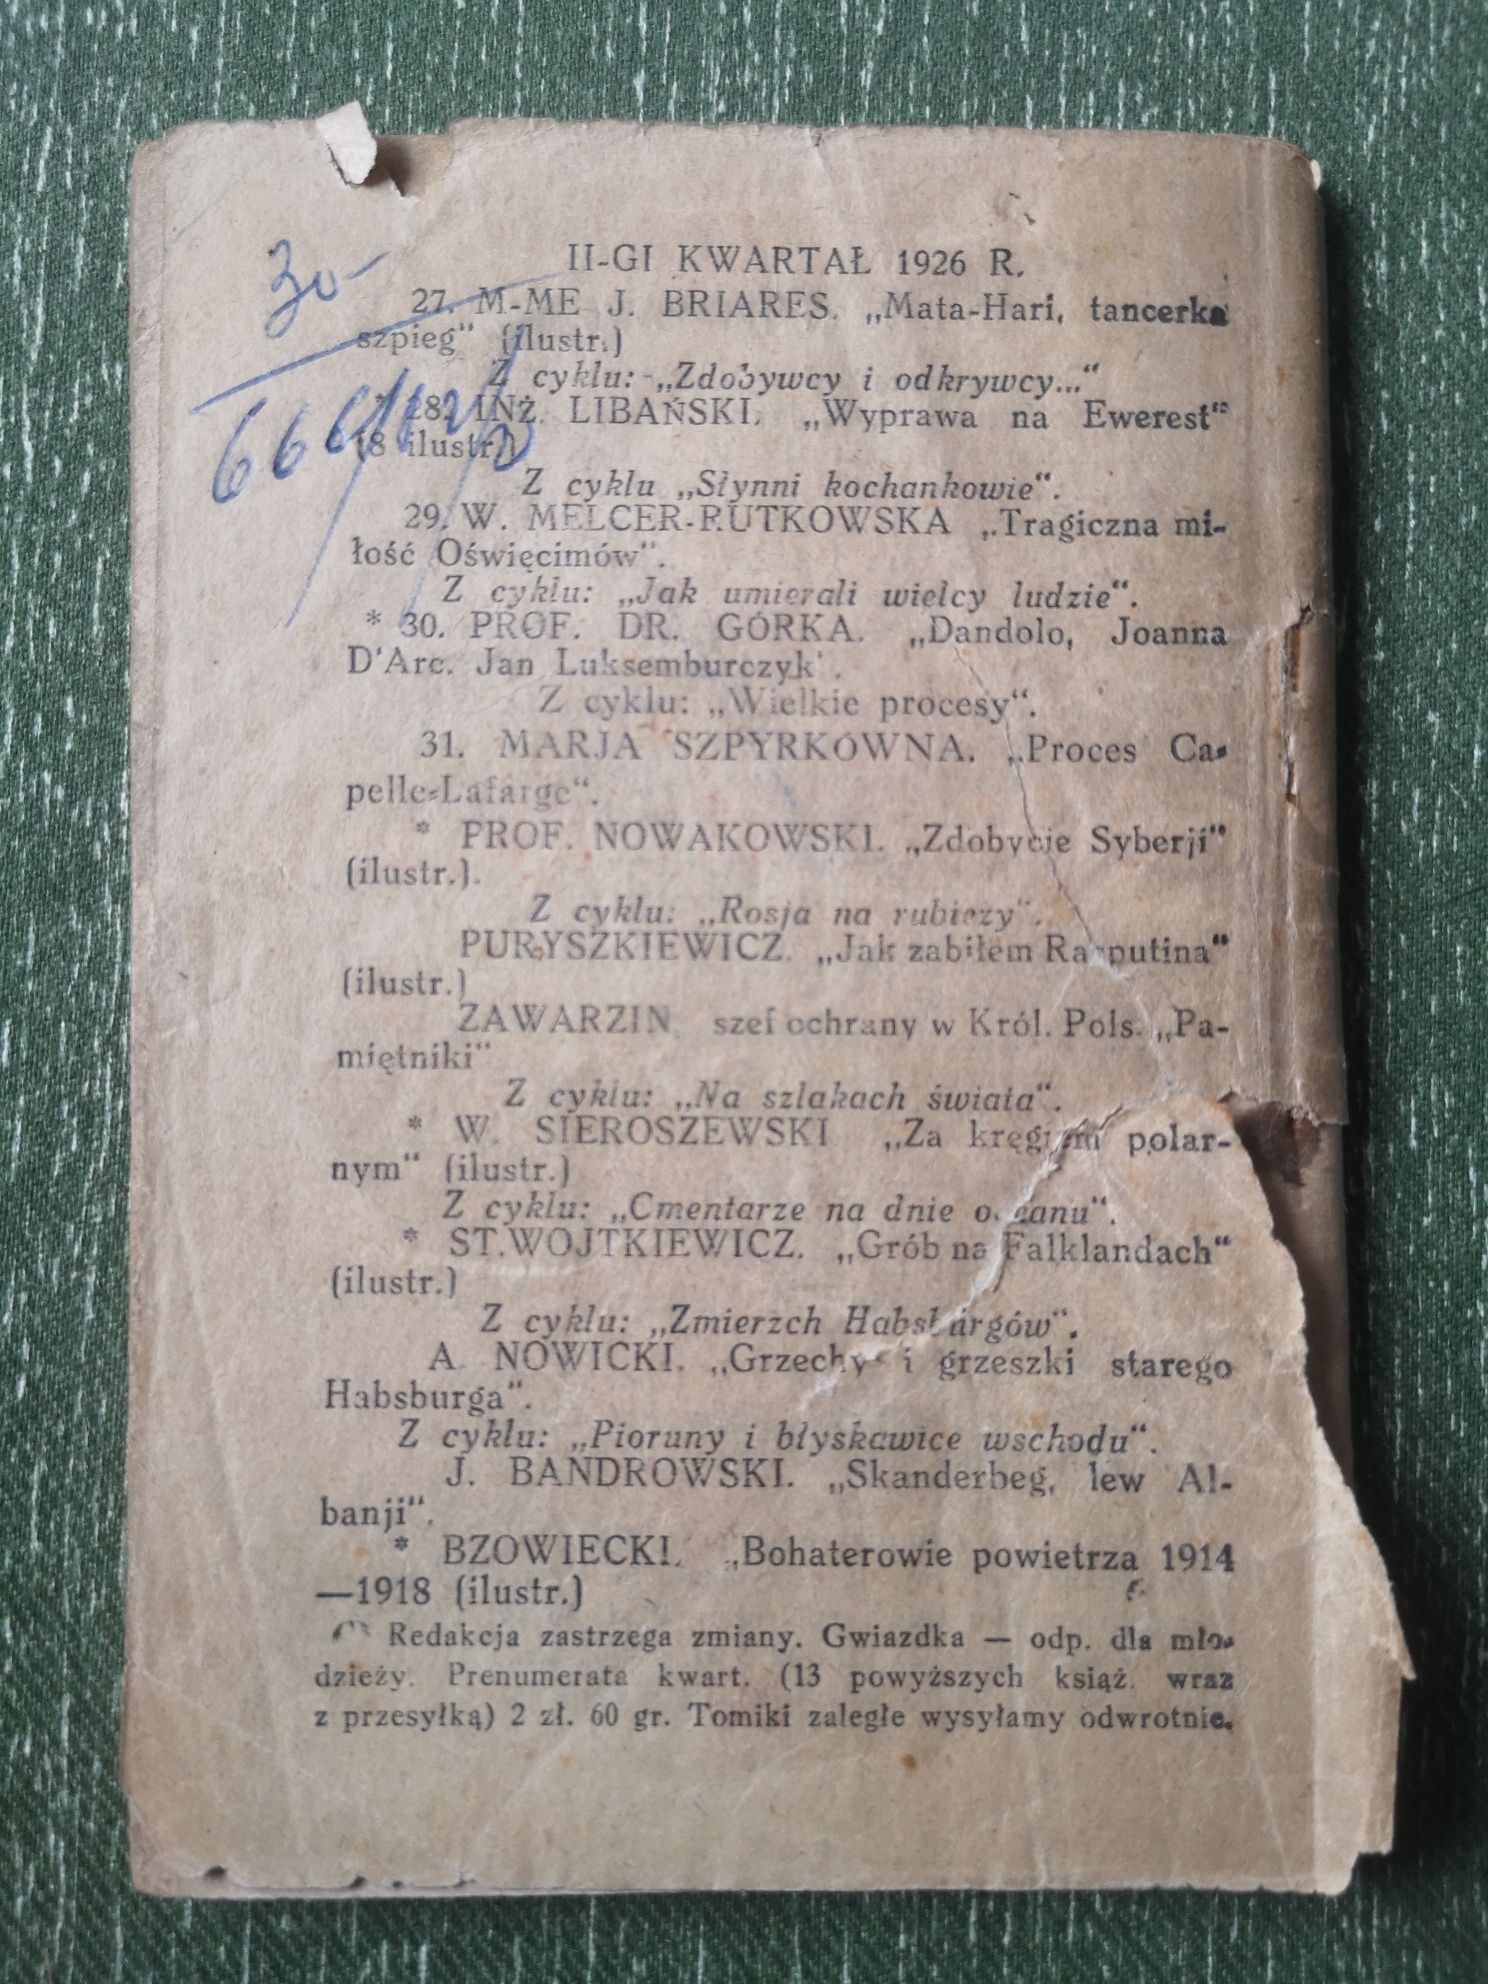 30-
II-GI KWARTAŁ 1926 R.
27. M-ME J. BRIARES. „Mata-Hari, tancerka
szpieg“ (ilustr.)
Z cyklu: „Zdobywcy i odkrywcy...“
* 28. INŻ. LIBAŃSKI. „Wyprawa na Ewerest“
(8 ilustr.)
Z cyklu „Słynni kochankowie“.
29. W. MELCER-RUTKOWSKA „Tragiczna mi-
łość Oświęcimów“.
Z cyklu: „Jak umierali wielcy ludzie“.
* 30. PROF. DR. GÓRKA. „Dandolo, Joanna
D'Arc. Jan Luksemburczyk'.
Z cyklu: „Wielkie procesy“.
31. MARJA SZPYRKÓWNA. „Proces Ca-
pelle-Lafarge“.
* PROF. NOWAKOWSKI. „Zdobycie Syberji“
(ilustr.).
Z cyklu: „Rosja na rubieży“.
PURYSZKIEWICZ. „Jak zabiłem Rasputina“
(ilustr.)
ZAWARZIN, szef ochrany w Król. Pols. „Pa-
miętniki“
Z cyklu: „Na szlakach świata“.
* W. SIEROSZEWSKI „Za kręgiem polar-
nym“ (ilustr.)
Z cyklu: „Cmentarze na dnie oceanu“.
* ST. WOJTKIEWICZ. „Grób na Falklandach“
(ilustr.)
Z cyklu: „Zmierzch Habsburgów“.
A. NOWICKI. „Grzechy i grzeszki starego
Habsburga“.
Z cyklu: „Pioruny i błyskawice wschodu“.
J. BANDROWSKI. „Skanderbeg, lew Al-
banji“.
* BZOWIECKI. „Bohaterowie powietrza 1914
—1918 (ilustr.)
Redakcja zastrzega zmiany. Gwiazdka — odp. dla mło-
dzieży. Prenumerata kwart. (13 powyższych książ. wraz
z przesyłką) 2 zł. 60 gr. Tomiki zaległe wysyłamy odwrotnie.